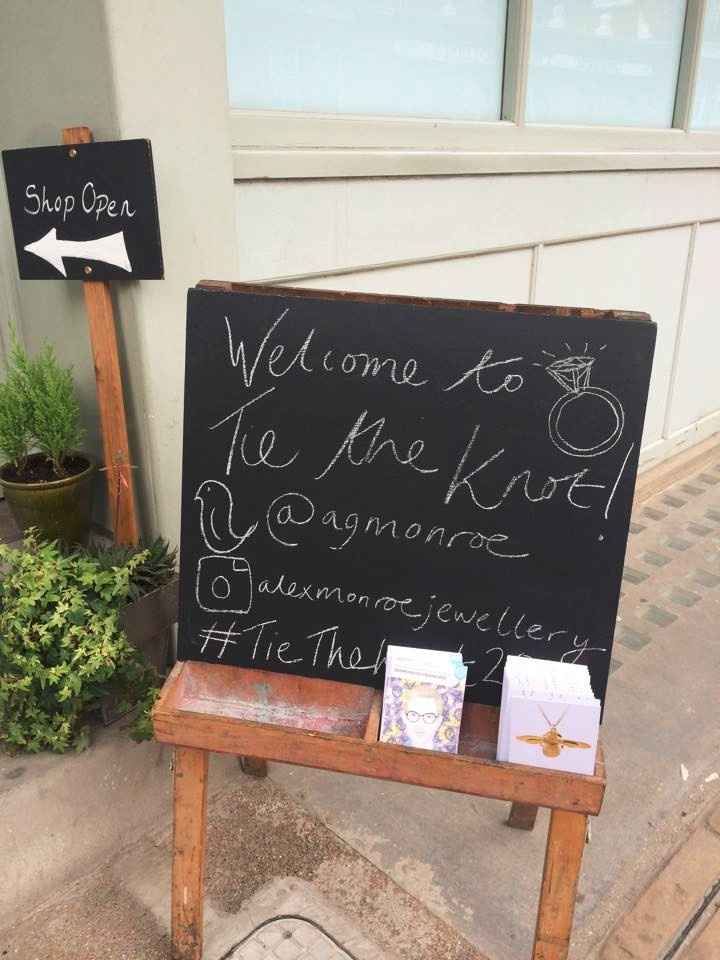 Shop Open
Welcome to
Tie the Knot!
@agmonroe
alexmonroejewellery